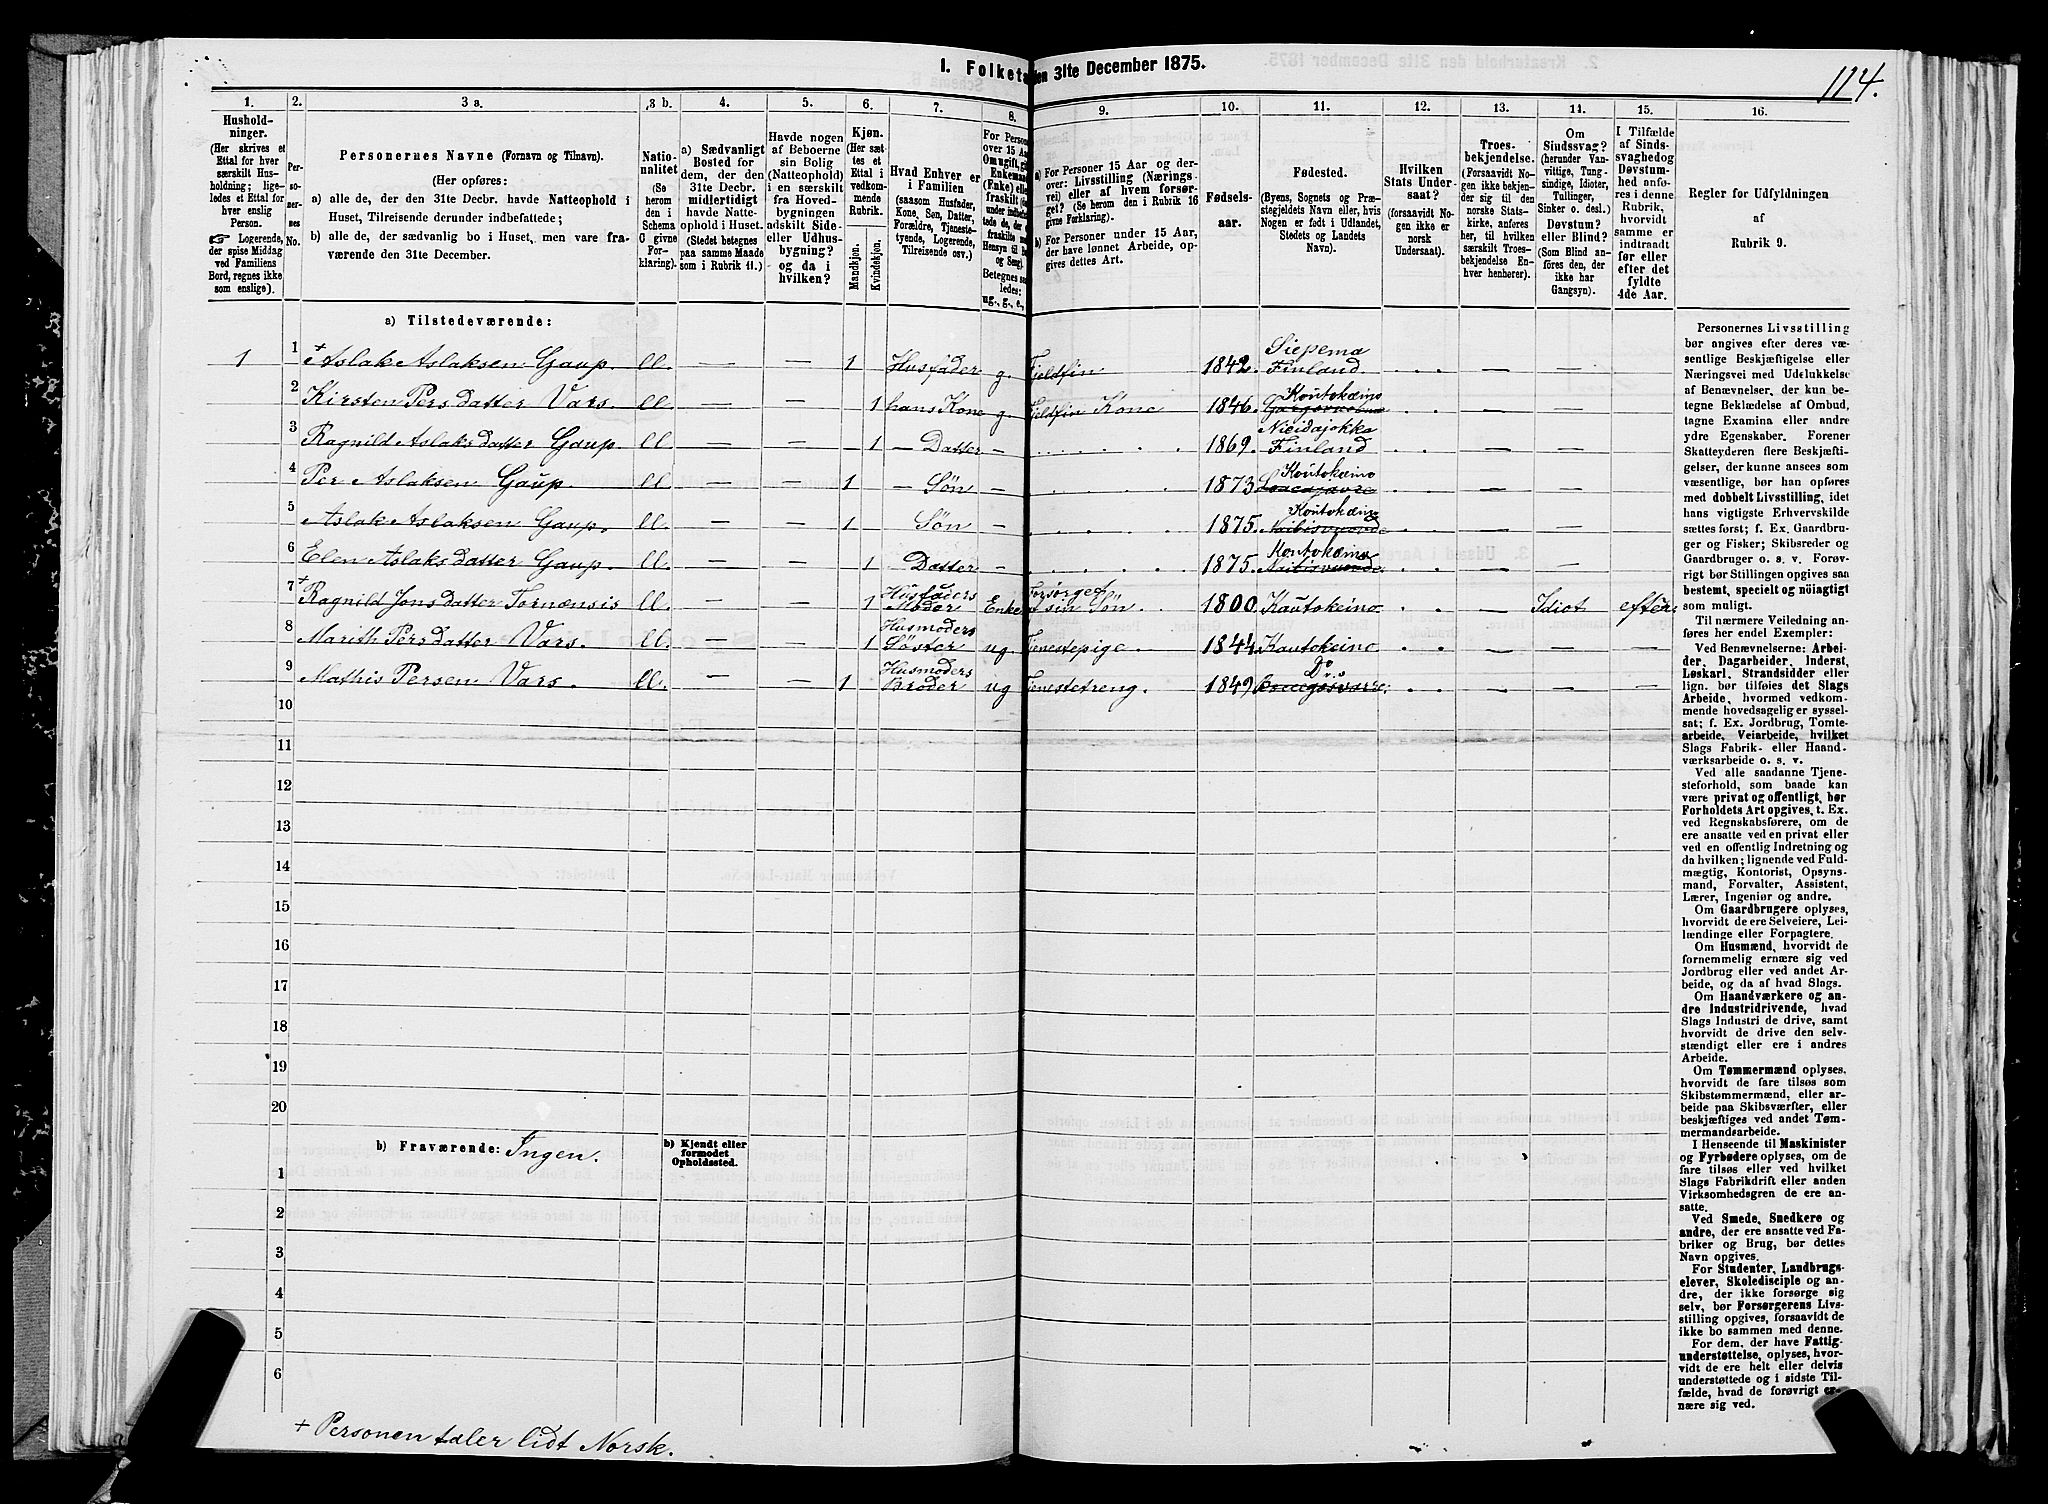 I. Folketa
en 31te December 1875.
114.
1.
2.
3 a.
3 b.
4.
5.
6.
7.
8.
9.
10.
11.
12.
13.
14.
15.
16.
Hushold-
ninger.
(Her skrives et
Ettal for hver
særskilt Hus-
holdning; lige-
ledes et Ettal for
hver enslig
Person.
☞ Logerende,
der spise Middag
ved Familiens
Bord, regnes ikke
som enslige).
Per-
so-
ner-
nes
No.
Personernes Navne (Fornavn og Tilnavn).
(Her opføres:
a) alle de, der den 31te Decbr. havde Natteophold i
Huset, Tilreisende derunder indbefattede;
b) alle de, der sædvanlig bo i Huset, men vare fra-
værende den 31te December.
Natio-
nalitet
(Se
herom
den i
Schema
C givne
For-
klaring).
a) Sædvanligt
Bosted for
dem, der den
31te Decbr.
midlertidigt
havde Natte-
ophold i Huset.
(Stedet betegnes
paa samme Maade
som i Rubrik 11.)
Havde nogen
af Beboerne
sin Bolig
(Natteophold)
i en særskilt
fra Hoved-
bygningen
adskilt Side-
eller Udhus-
bygning?
og da i
hvilken?
Kjøn.
(Her sæt-
tes et
Ettal i
vedkom-
mende
Rubrik.
Mandkjøn.
Kvindekjøn.
Hvad Enhver er
i Familien
(saasom Husfader,
Kone, Søn, Datter,
Forældre, Tjeneste-
tyende, Logerende,
Tilreisende osv.)
For Person
over 15 Aar
Om ugift, gi
Enkeman
(Enke) elle
fraskilt (d
Betegnes sa
ledes:
ug., g., e.,
a) For Personer 15 Aar og der-
over: Livsstilling (Nærings-
vei) eller af hvem forsør-
get? (Se herom den i Rubrik 16
givne Forklaring).
b) For Personer under 15 Aar,
der have lønnet Arbeide, op-
gives dettes Art.
Fødsels-
aar.
Fødested.
(Byens, Sognets og Præ-
stegjeldets Navn eller, hvis
Nogen er født i Udlandet,
Stedets og Landets
Navn).
Hvilken
Stats Under-
saat?
(forsaavidt No-
gen ikke er
norsk
Undersaat).
Troes-
bekjendelse.
(Forsaavidt No-
gen ikke bekjen-
der sig til den
norske Stats-
kirke, anføres
her, til hvilken
særskilt Troes-
bekjendelse En-
hver henhører).
Om
Sindssvag?
(herunder Van-
vittige, Tung-
sindige, Idioter,
Tullinger,
Sinker o. desl.)
Døvstum?
eller Blind?
(Som Blind an-
føres den, der
ikke har
Gangsyn).
I Tilfælde
af Sinds-
svaghed og
Døvstum-
hed anfø-
res i denne
Rubrik,
hvorvidt
samme er
indtraadt
før eller
efter det
fyldte
4de Aar.
Regler for Udfyldningen
af
Rubrik 9.
a) Tilstedeværende:
1 1 + Aslak Aslaksen Gaup. ll. — — 1 Husfader g. Fjeldfin 1842. Siepema Finland
2 Kirsten Persdatter Vars. ll. — — 1 hans Kone g. Fjeldfin Kone 1846. Koutokæino
3 Ragnild Aslaksdatter Gaup. ll — — 1 — Datter — 1869. Finland —
4 Per Aslaksen Gaup. ll — — 1 — Søn — 1873 Koutokæino
5 Aslak Aslaksen Gaup. ll. — — 1 Søn — 1875. Koutokæino
6 Elen Aslaksdatter Gaup. ll. — — 1 Datter — 1875. Koutokæino
7 + Ragnild Jonsdatter Tornænsis ll. — — 1 Husfaders Moder Enke Forsørget af sin Søn 1800. Kautokeino — Idiot efter
8 Marith Persdatter Vars. ll. — — 1 Husmoders Søster ug. Tjenestepige 1844 Kautokeino — — —
9 Mathis Persen Vars. ll. — — 1 Husmoders Broder ug Tjenestetreng. 1849 Do — — —
10
11
12
13
14
15
16
17
18
19
20
b) Fraværende: Ingen.
b) Kjendt eller
formodet
Opholdssted.
1
2
3
4
5
6
+ Personen taler lidt Norsk.
Personernes Livsstilling
bør angives efter deres væ-
sentlige Beskjæftigelse eller
Næringsvei med Udelukkelse
af Benævnelser, der kun be-
tegne Beklædelse af Ombud,
tagne Examina eller andre
ydre Egenskaber. Forener
Skatteyderen flere Beskjæfti-
gelser, der kunne ansees som
væsentlige, bør han opføres
med dobbelt Livsstilling, idet
hans vigtigste Erhvervskilde
sættes først; f. Ex. Gaardbru-
ger og Fisker; Skibsreder og
Gaardbruger o. s. v. Forøv-
rigt bør Stillingen opgives saa
bestemt, specielt og nøiagtigt
som muligt.
Til nærmere Veiledning an-
føres her endel Exempler:
Ved Benævnelserne: Arbei-
der, Dagarbeider, Inderst,
Løskarl, Strandsidder eller
lign. bør tilføies det Slags
Arbeide, hvormed vedkom-
mende hovedsagelig er syssel-
sat; f. Ex. Jordbrug, Tomte-
arbeide, Veiarbeide, hvilket
Slags Fabrik- eller Haand-
værksarbeide o. s. v.
Ved alle saadanne Tjene-
steforhold, som baade kan
være privat og offentligt, bør
Forholdets Art opgives, t. Ex.
ved Regnskabsførere, om de
ere ansatte ved en privat eller
ved en offentlig Indretning og
da hvilken; lignende ved Fuld-
mægtig, Kontorist, Opsyns-
mand, Forvalter, Assistent,
Lærer, Ingeniør og andre.
Om Gaardbrugere oplyses,
hvorvidt de ere Selveiere, Lei-
lændinge eller Forpagtere.
Om Husmænd, hvorvidt de
fornemmelig ernære sig ved
Jordbrug eller ved andet Ar-
beide, og da af hvad Slags.
Om Haandværkere og an-
dre Industridrivende, hvad
Slags Industri de drive, samt
hvorvidt de drive den selv-
stændigt eller ere i andres
Arbeide.
Om Tømmermænd oplyses,
hvorvidt de fare tilsøs som
Skibstømmermænd, eller ar-
beide paa Skibsværfter, eller
beskjæftiges ved andet Tøm-
mermandsarbeide.
I Henseende til Maskinister
og Fyrbødere oplyses, om de
fare tilsøs eller ved hvilket
Slags Fabrikdrift eller anden
Virksomhedsgren de ere an-
satte.
Ved Smede, Snedkere og
andre, der ere ansatte ved Fa-
briker og Brug, bør dettes
Navn opgives.
For Studenter, Landbrugs-
elever, Skoledisciple og an-
dre, der ikke forsørge sig
selv, bør Forsørgerens Livs-
stilling opgives, forsaavidt de
ikke bo sammen med denne.
For dem, der have Fattig-
understøttelse, oplyses, hvor-
vidt de ere helt eller delvis
understøttede og i sidste Til-
fælde, hvad de forøvrigt er-
nære sig ved.